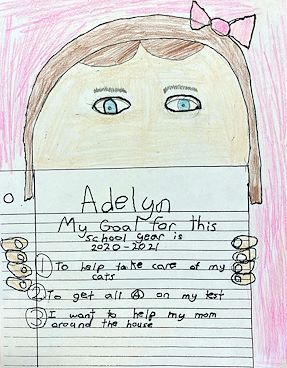 Adelyn
My Goal for this
school year is
2020-2021
1 To help take care of my
cats
2 To get all A on my test
3 I want to help my mom
around the house